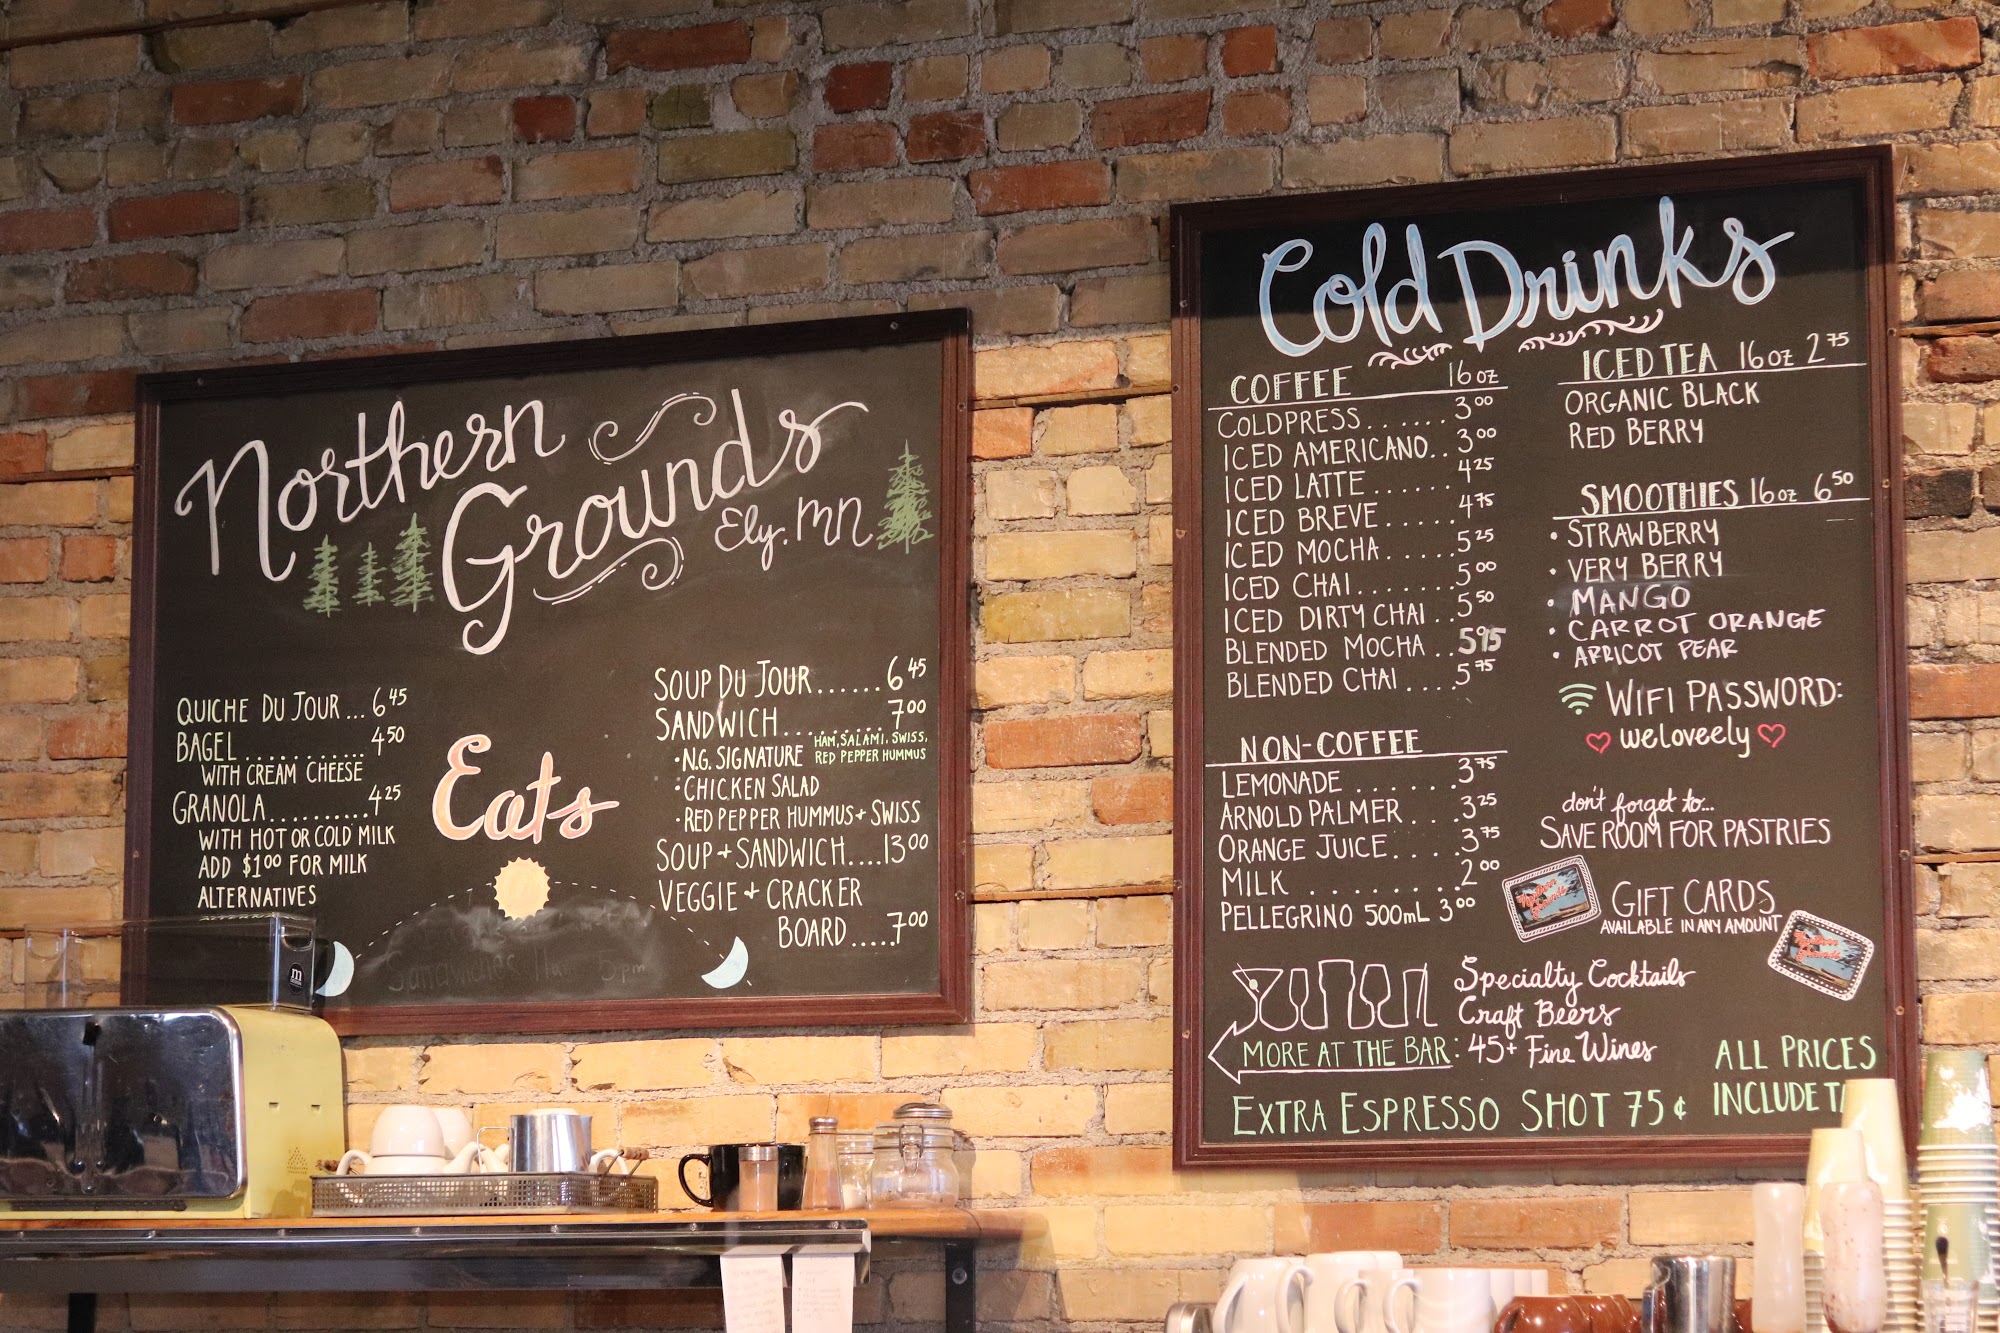 Northern
Grounds
Ely. MN
QUICHE DU JOUR ... 6 45
BAGEL ........... 4 50
WITH CREAM CHEESE
GRANOLA .......... 4 25
WITH HOT OR COLD MILK
ADD $1 00 FOR MILK
ALTERNATIVES
Eats
SOUP DU JOUR ...... 6 45
SANDWICH ........ 7 00
• N.G. SIGNATURE HAM, SALAMI, SWISS,
RED PEPPER HUMMUS
• CHICKEN SALAD
• RED PEPPER HUMMUS + SWISS
SOUP + SANDWICH .... 13 00
VEGGIE + CRACKER
BOARD ..... 7 00
Sandwiches 11am 5pm
m
Cold Drinks
COFFEE 16 oz
COLDPRESS ....... 3 00
ICED AMERICANO .. 3 00
ICED LATTE ...... 4 25
ICED BREVE ..... 4 75
ICED MOCHA ..... 5 25
ICED CHAI ....... 5 00
ICED DIRTY CHAI .. 5 50
BLENDED MOCHA .. 5 95
BLENDED CHAI .... 5 75
NON-COFFEE
LEMONADE ...... 3 75
ARNOLD PALMER ... 3 25
ORANGE JUICE .... 3 75
MILK ......... 2 00
PELLEGRINO 500mL 3 00
ICED TEA 16 oz 2 75
ORGANIC BLACK
RED BERRY
SMOOTHIES 16 oz 6 50
• STRAWBERRY
• VERY BERRY
• MANGO
• CARROT ORANGE
• APRICOT PEAR
WIFI PASSWORD:
weloveely
don't forget to...
SAVE ROOM FOR PASTRIES
Northern
Grounds
GIFT CARDS
AVAILABLE IN ANY AMOUNT
Northern
Grounds
Specialty Cocktails
Craft Beers
MORE AT THE BAR: 45+ Fine Wines
ALL PRICES
INCLUDE
EXTRA ESPRESSO SHOT 75¢